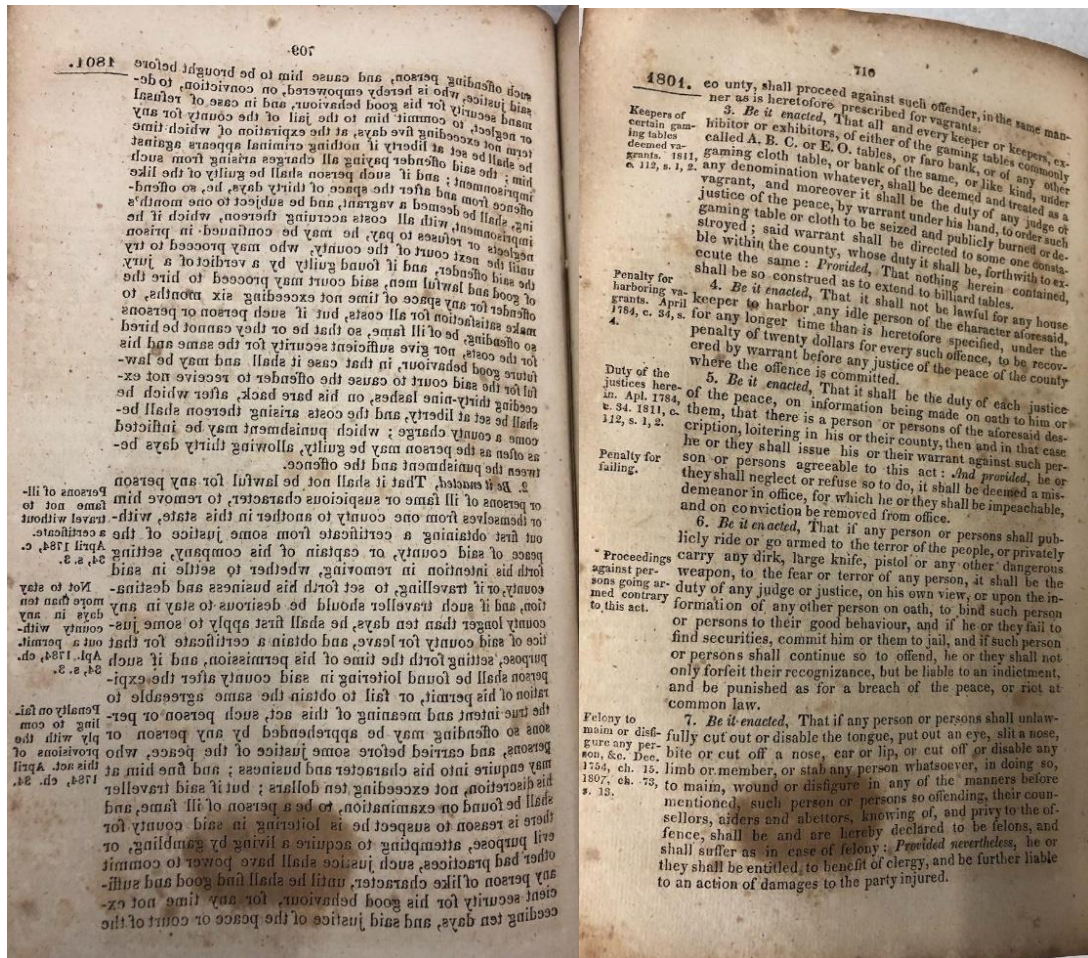 709
1801.
such offending person, and cause him to be brought before
said justice, who is hereby empowered, on conviction, to de-
mand security for his good behaviour, and in case of refusal
or neglect, to commit him to the jail of the county for any
term not exceeding five days, at the expiration of which time
he shall be set at liberty if nothing criminal appears against
him; the said offender paying all charges arising from such
imprisonment; and if such person shall be guilty of the like
offence from and after the space of thirty days, he, so offend-
ing, shall be deemed a vagrant, and be subject to one month's
imprisonment, with all costs accruing thereon, which if he
neglects or refuses to pay, he may be continued in prison
until the next court of the county, who may proceed to try
the said offender, and if found guilty by a verdict of a jury
of good and lawful men, said court may proceed to hire the
offender for any space of time not exceeding six months, to
make satisfaction for all costs, but if such person or persons
so offending, be of ill fame, so that he or they cannot be hired
for the costs, nor give sufficient security for the same and his
future good behaviour, in that case it shall and may be law-
ful for the said court to cause the offender to receive not ex-
ceeding thirty-nine lashes, on his bare back, after which he
shall be set at liberty, and the costs arising thereon shall be-
come a county charge; which punishment may be inflicted
as often as the person may be guilty, allowing thirty days be-
tween the punishment and the offence.
2. Be it enacted, That it shall not be lawful for any person
or persons of ill fame or suspicious character, to remove him
or themselves from one county to another in this state, with-
out first obtaining a certificate from some justice of the
peace of said county, or captain of his company, setting
forth his intention in removing, whether to settle in said
county, or if travelling, to set forth his business and destina-
tion, and if such traveller should be desirous to stay in any
county longer than ten days, he shall first apply to some jus-
tice of said county for leave, and obtain a certificate for that
purpose, setting forth the time of his permission, and if such
person shall be found loitering in said county after the expi-
ration of his permit, or fail to obtain the same agreeable to
the true intent and meaning of this act, such person or per-
sons so offending may be apprehended by any person or
persons, and carried before some justice of the peace, who
may enquire into his character and business; and fine him at
his discretion, not exceeding ten dollars; but if said traveller
shall be found on examination, to be a person of ill fame, and
there is reason to suspect he is loitering in said county for
evil purpose, attempting to acquire a living by gambling, or
other bad practices, such justice shall have power to commit
any person of like character, until he shall find good and suffi-
cient security for his good behaviour, for any time not ex-
ceeding ten days, and said justice of the peace or court of the
Persons of ill-
fame not to
travel without
a certificate.
April 1784, c.
34, s. 3.
Not to stay
more than ten
days in any
county with-
out a permit.
Apl. 1784, ch.
34, s. 3.
Penalty on fai-
ling to com
ply with the
provisions of
this act. April
1784, ch. 34.
710
1801.
eo unty, shall proceed against such offender, in the same man-
ner as is heretofore prescribed for vagrants.
3. Be it enacted, That all and every keeper or keepers, ex-
hibitor or exhibitors, of either of the gaming tables commonly
called A. B. C. or E. O. tables, or faro bank, or of any other
gaming cloth table, or bank of the same, or like kind, under
any denomination whatever, shall be deemed and treated as a
vagrant, and moreover it shall be the duty of any judge or
justice of the peace, by warrant under his hand, to order such
gaming table or cloth to be seized and publicly burned or de-
stroyed; said warrant shall be directed to some one consta-
ble within the county, whose duty it shall be, forthwith to ex-
ecute the same: Provided, That nothing herein contained,
shall be so construed as to extend to billiard tables.
4. Be it enacted, That it shall not be lawful for any house
keeper to harbor any idle person of the character aforesaid,
for any longer time than is heretofore specified, under the
penalty of twenty dollars for every such offence, to be recov-
ered by warrant before any justice of the peace of the county
where the offence is committed.
5. Be it enacted, That it shall be the duty of each justice
of the peace, on information being made on oath to him or
them, that there is a person or persons of the aforesaid des-
cription, loitering in his or their county, then and in that case
he or they shall issue his or their warrant against such per-
son or persons agreeable to this act: And provided, he or
they shall neglect or refuse so to do, it shall be deemed a mis-
demeanor in office, for which he or they shall be impeachable,
and on conviction be removed from office.
6. Be it enacted, That if any person or persons shall pub-
licly ride or go armed to the terror of the people, or privately
carry any dirk, large knife, pistol or any other dangerous
weapon, to the fear or terror of any person, it shall be the
duty of any judge or justice, on his own view, or upon the in-
formation of any other person on oath, to bind such person
or persons to their good behaviour, and if he or they fail to
find securities, commit him or them to jail, and if such person
or persons shall continue so to offend, he or they shall not
only forfeit their recognizance, but be liable to an indictment,
and be punished as for a breach of the peace, or riot at
common law.
7. Be it enacted, That if any person or persons shall unlaw-
fully cut out or disable the tongue, put out an eye, slit a nose,
bite or cut off a nose, ear or lip, or cut off or disable any
limb or member, or stab any person whatsoever, in doing so,
to maim, wound or disfigure in any of the manners before
mentioned, such person or persons so offending, their coun-
sellors, aiders and abettors, knowing of, and privy to the of-
fence, shall be and are hereby declared to be felons, and
shall suffer as in case of felony: Provided nevertheless, he or
they shall be entitled to benefit of clergy, and be further liable
to an action of damages to the party injured.
Keepers of
certain gam-
ing tables
deemed va-
grants. 1811,
c. 112, s. 1, 2.
Penalty for
harboring va-
grants. April
1784, c. 34, s.
4.
Duty of the
justices here-
in. Apl. 1784,
c. 34. 1811, c.
112, s. 1, 2.
Penalty for
failing.
Proceedings
against per-
sons going ar-
med contrary
to this act.
Felony to
maim or disfi-
gure any per-
son, &c. Dec.
1754, ch. 15.
1807, ch. 73,
s. 13.